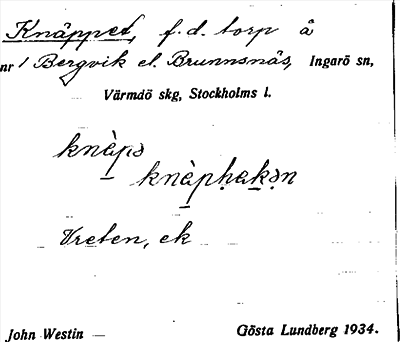 Knäppet, f.d. torp å
nr 1 Bergvik el. Brunnsnäs, Ingarö sn,
Värmdö skg, Stockholms l.
knàpə
knàpḥakən
Vreten, ek
John Westin —
Gösta Lundberg 1934.